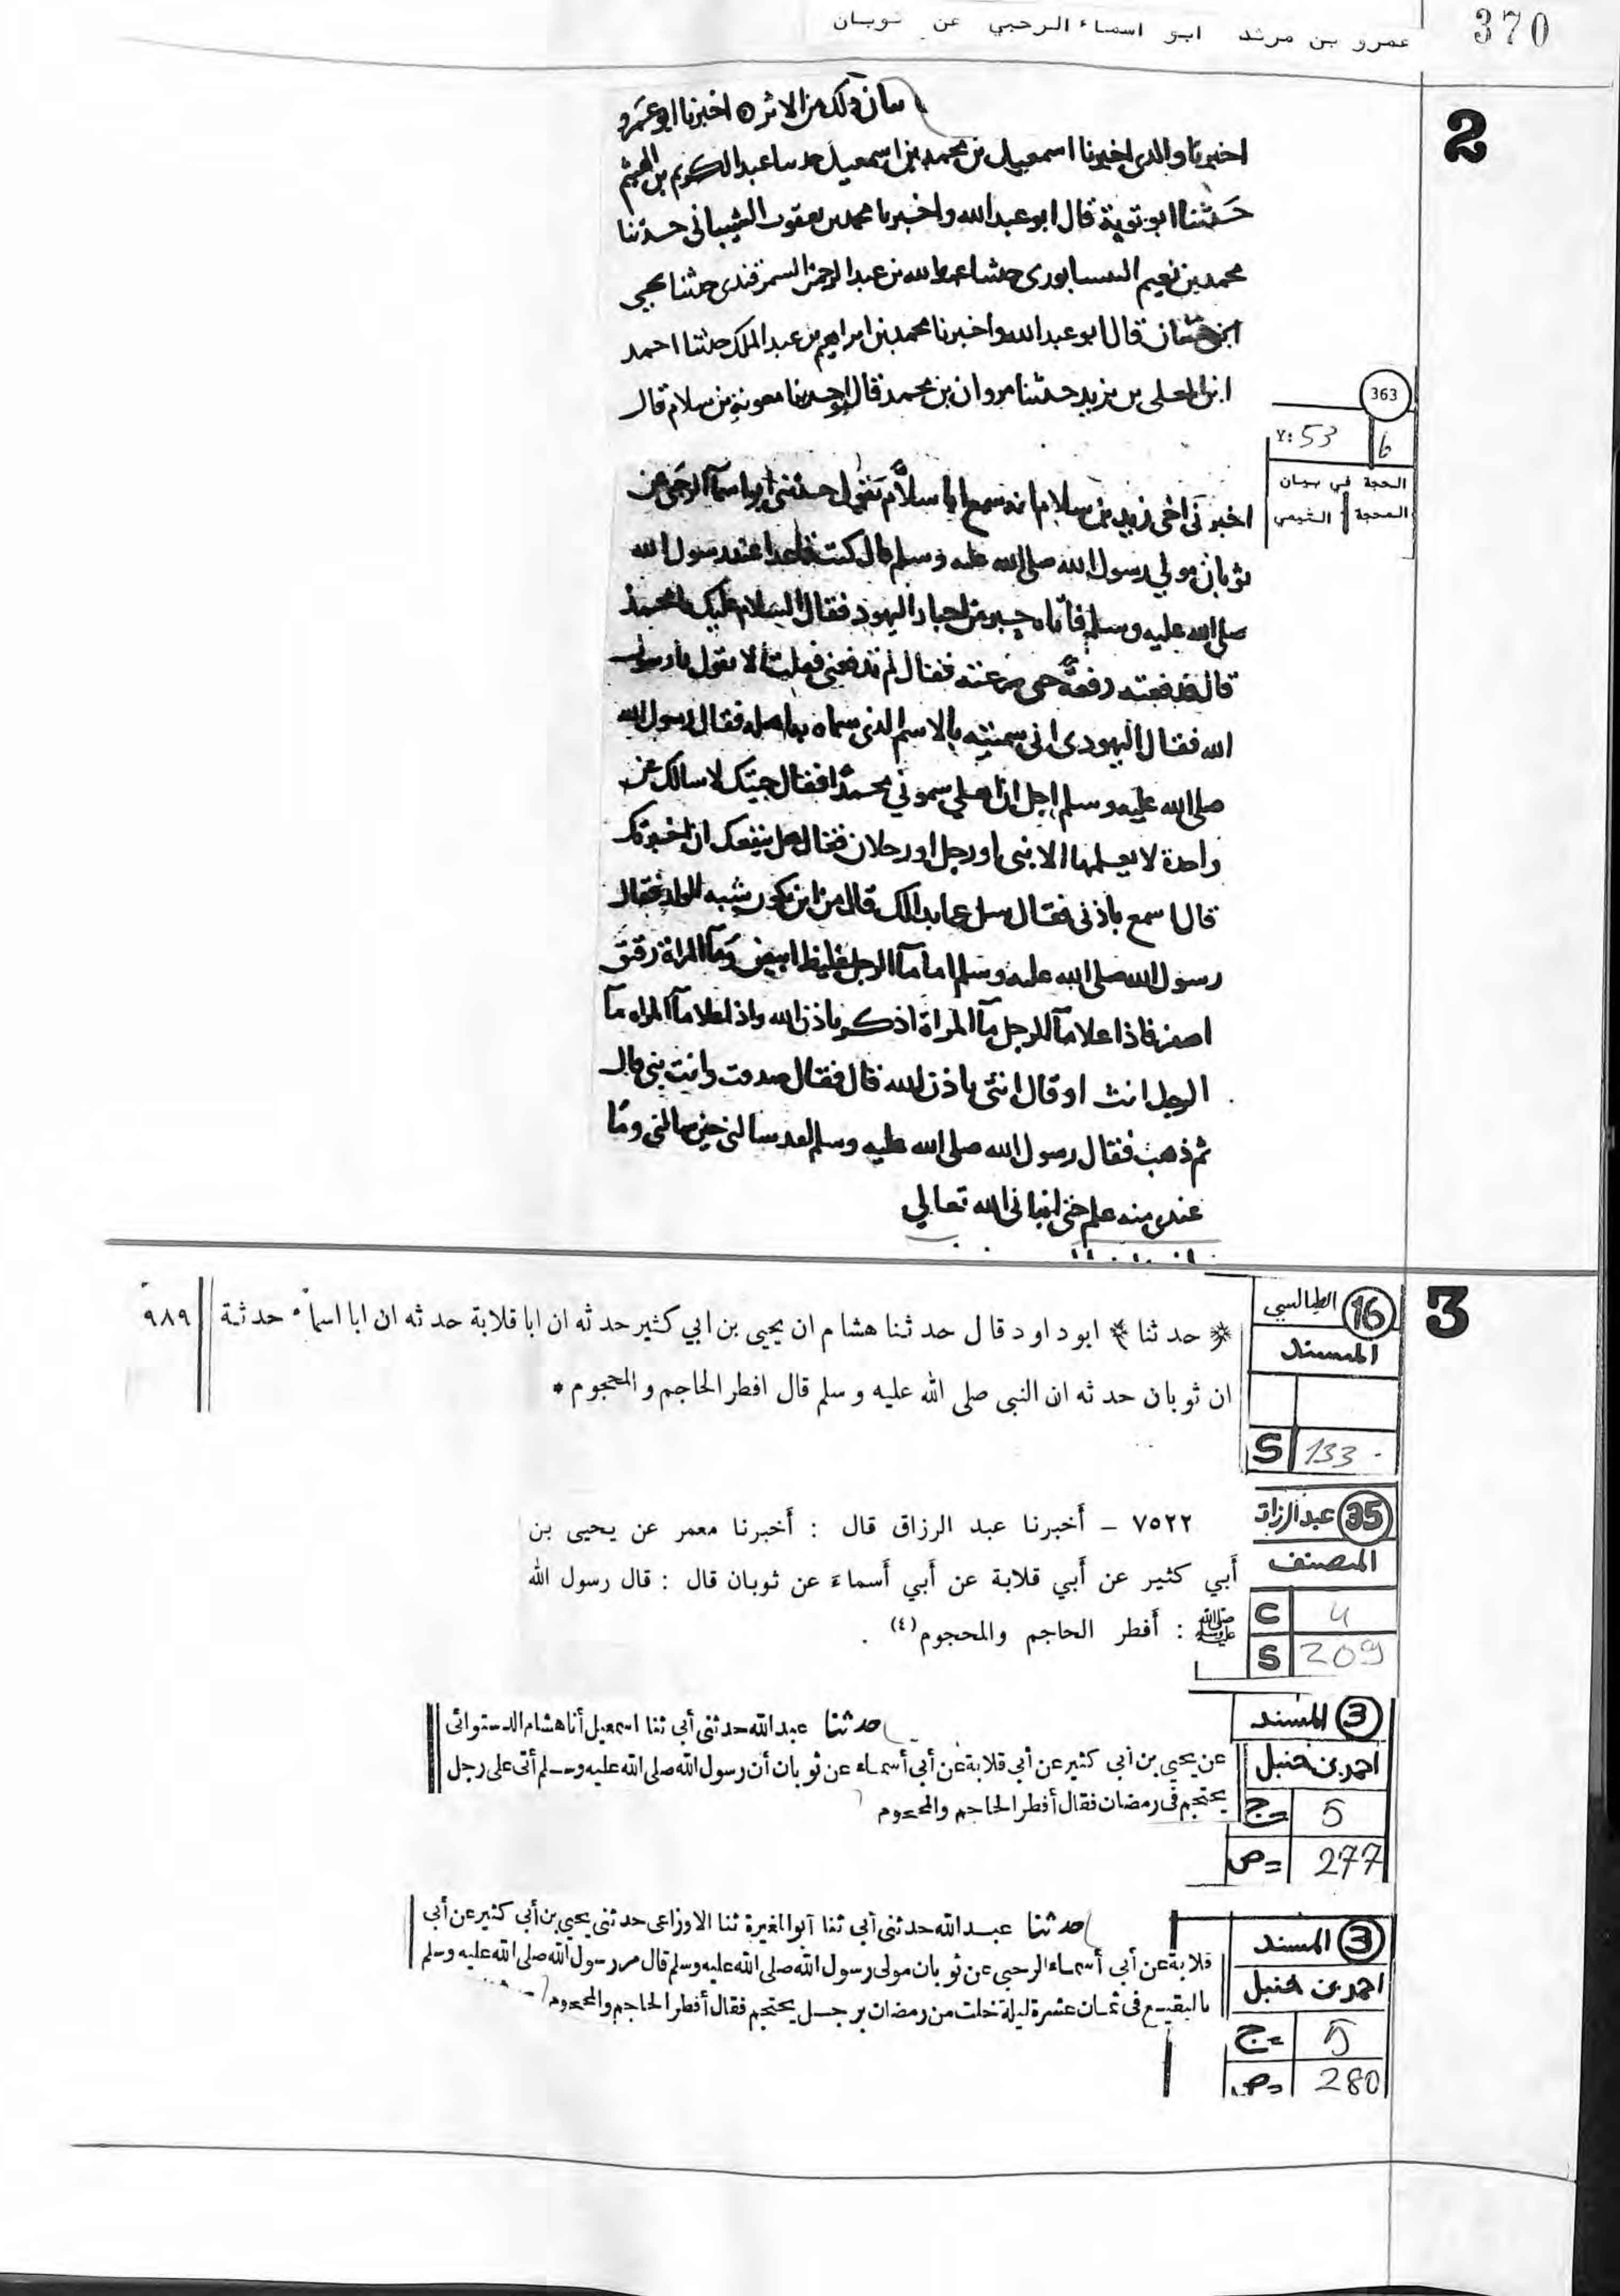 370
عمرو بن مرثد ابو اسماء الرحبي عن ثوبان
2
ذلك من الاثر اخبرنا ابو عمرو
اخبرنا والدي اخبرنا اسمعيل بن محمد بن اسمعيل حدثنا عبد الكريم بن الهيثم
حدثنا ابو توبة قال ابو عبد الله واخبرنا محمد بن يعقوب الشيباني حدثنا
محمد بن نعيم النيسابوري حدثنا عبد الله بن عبد الرحمن السمرقندي حدثنا يحيى
ابن حسان قال ابو عبد الله واخبرنا محمد بن ابراهيم بن عبد الملك حدثنا احمد
ابن المعلى بن يزيد حدثنا مروان بن محمد قال حدثنا معوية بن سلام قال
363
6
٧: 53
الحجة في بيان
المحجة التيمي
اخبرني اخي زيد بن سلام انه سمع ابا سلام يقول حدثني ابو اسما الرحبي عن
ثوبان مولي رسول الله صلى الله عليه وسلم قال كنت قاعدا عند رسول الله
صلى الله عليه وسلم فاتاه حبر من احبار اليهود فقال السلام عليك يا محمد
قال فدفعته دفعة فقال لم تدفعني فقلت الا تقول يا رسول
الله فقال اليهودي اني سميته بالاسم الذي سماه به اهله فقال رسول الله
صلى الله عليه وسلم اجل ان اهلي سموني محمدا فقال جيتك لاسالك عن
واحدة لا يعلمها الا نبي او رجل او رجلان فقال هل ينفعك ان اخبرتك
قال اسمع باذني فقال سل عما بدا لك قال من اين يكون شبه الولد فقال
رسول الله صلى الله عليه وسلم اما مآ الرجل غليظ ابيض ومآ المراة رقيق
اصفر فاذا علا مآ الرجل مآ المراة اذكر باذن الله واذا علا مآ المراه مآ
الرجل انث او قال انثى باذن الله قال فقال صدقت وانت نبي قال
ثم ذهب فقال رسول الله صلى الله عليه وسلم لقد سالني حين سالني وما
عندي منه علم حتى انباني الله تعالي
3
16 الطيالسي
المسند
S 133
حد ثنا ابو داود قال حد ثنا هشام ان يحيى بن ابي كثير حد ثه ان ابا قلابة حد ثه ان ابا اسماء حد ثه
٩٨٩
ان ثوبان حد ثه ان النبى صلى الله عليه و سلم قال افطر الحاجم و المحجوم *
35 عبدالرزاق
المصنف
C 4
S 209
٧٥٢٢ – أخبرنا عبد الرزاق قال : أخبرنا معمر عن يحيى بن
أبي كثير عن أبي قلابة عن أبي أسماءَ عن ثوبان قال : قال رسول الله
ﷺ : أفطر الحاجم والمحجوم(٤) .
3 المسند
احمد بن حنبل
ج= 5
ص= 277
حدثنا عبد الله حدثني أبي ثنا اسمعيل أنا هشام الدستوائى
عن يحيى بن أبي كثير عن أبي قلابة عن أبي أسماء عن ثوبان أن رسول الله صلى الله عليه وسلم أتى على رجل
يحتجم فى رمضان فقال أفطر الحاجم والمحجوم
3 المسند
احمد بن حنبل
ج= 5
ص= 280
حدثنا عبد الله حدثني أبي ثنا أبو المغيرة ثنا الاوزاعى حدثني يحيى بن أبي كثير عن أبي
قلابة عن أبي أسماء الرحبي عن ثوبان مولى رسول الله صلى الله عليه وسلم قال مر رسول الله صلى الله عليه وسلم
بالبقيع فى ثمان عشرة ليلة خلت من رمضان برجل يحتجم فقال أفطر الحاجم والمحجوم